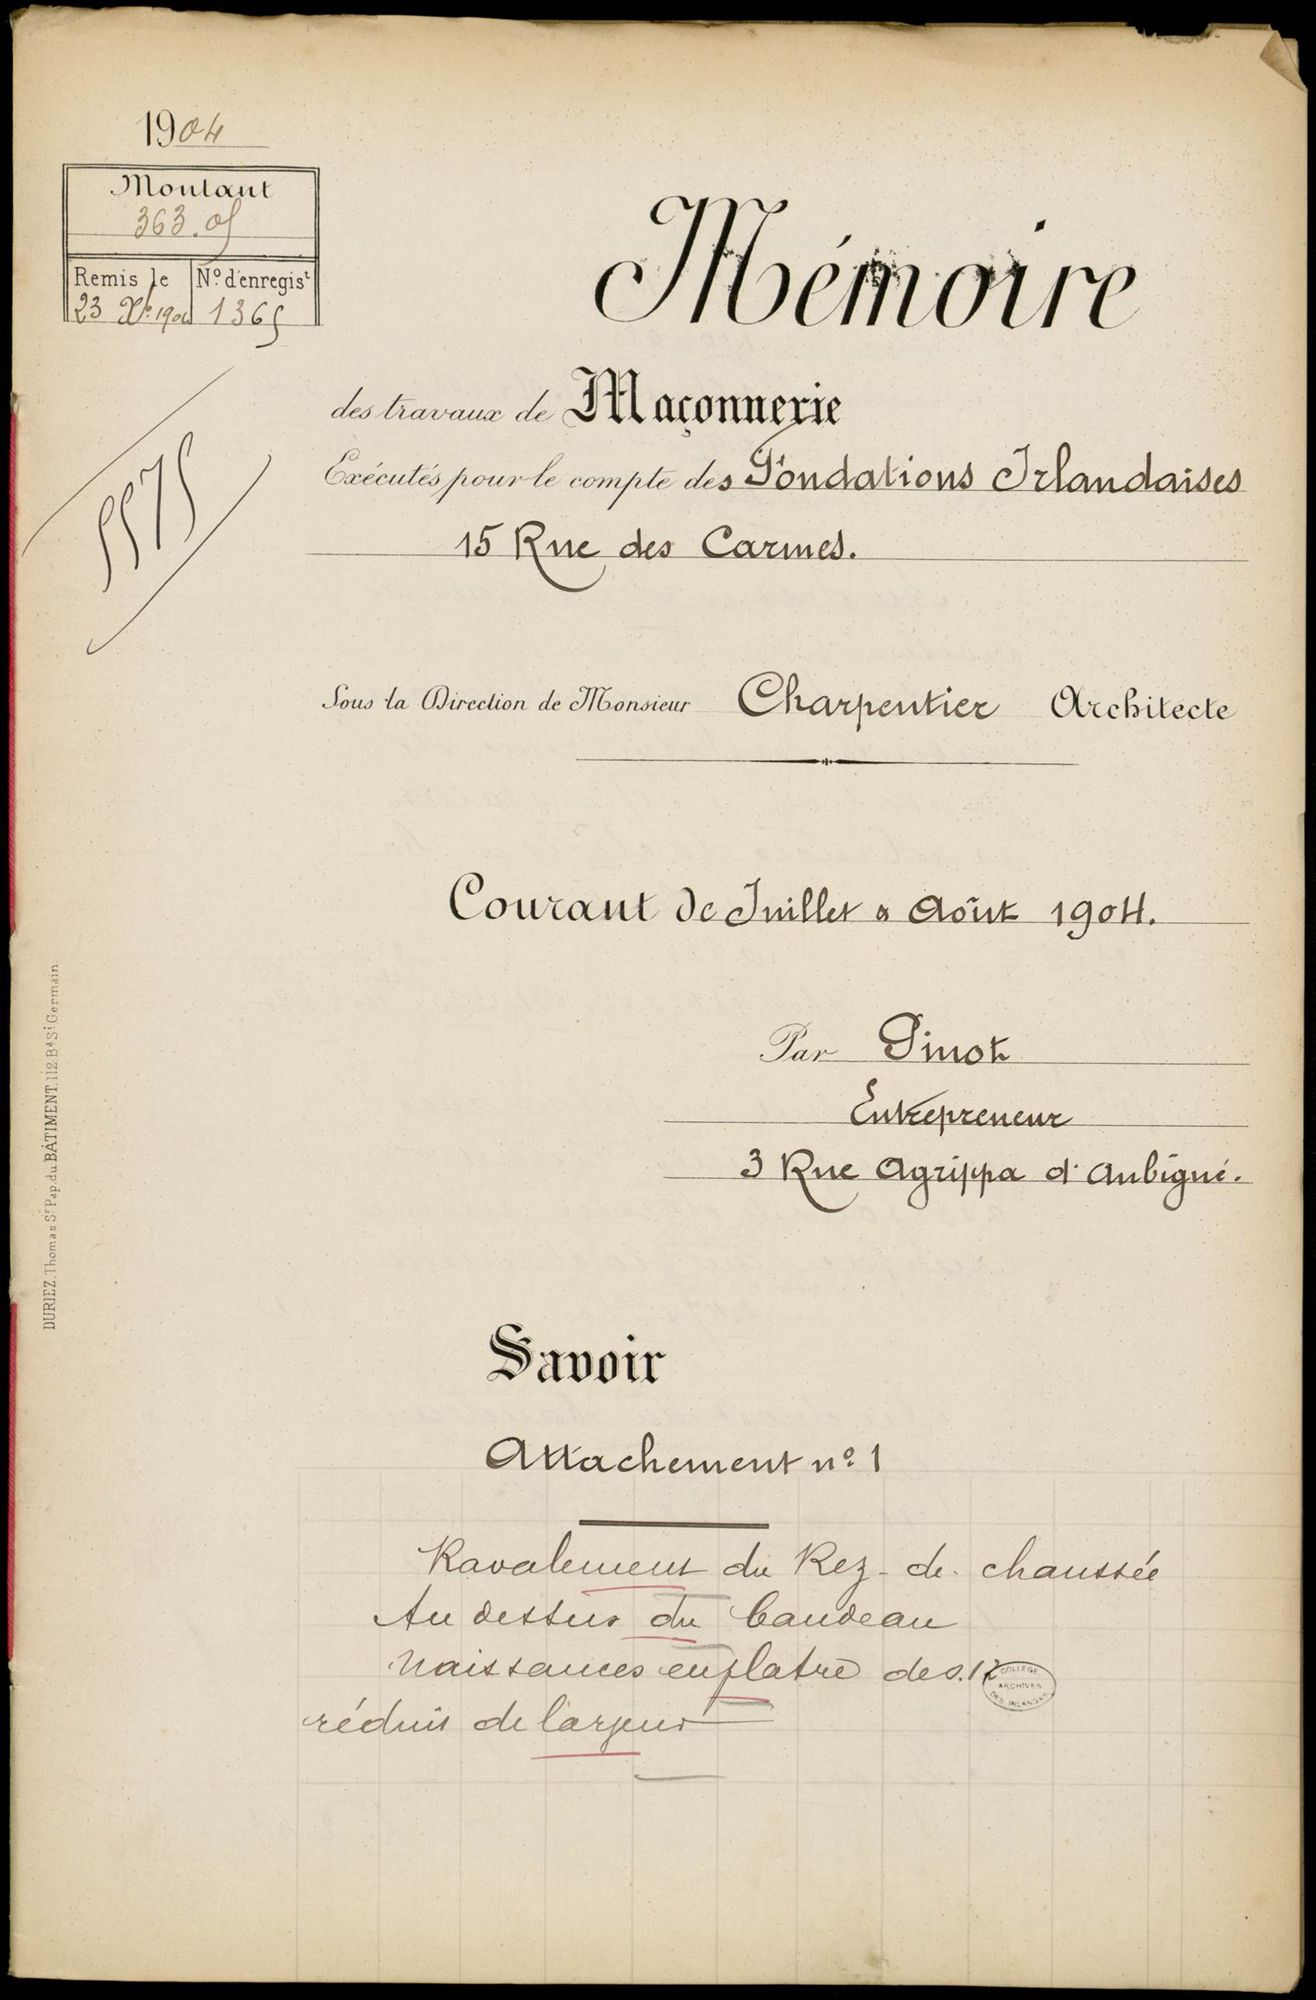 1904
Montant
363.05
Remis le
23 Xe 1904
No d'enregist
1365
5575
Mémoire
des travaux de Maçonnerie
Exécutés pour le compte des Fondations Irlandaises
15 Rue des Carmes.
Sous la Direction de Monsieur Charpentier Architecte
Courant de Juillet & Août 1904.
Par Pinot
Entrepreneur
3 Rue Agrippa d'Aubigné.
DURIEZ, Thomas Sr Pap. du BÂTIMENT, 112 Bd St Germain
Savoir
Attachement no 1
Ravalement du Rez-de-chaussée
Au dessus du bandeau
Naissances en platre de 0.12
réduit de largeur
COLLEGE
ARCHIVES
DES IRLANDAIS